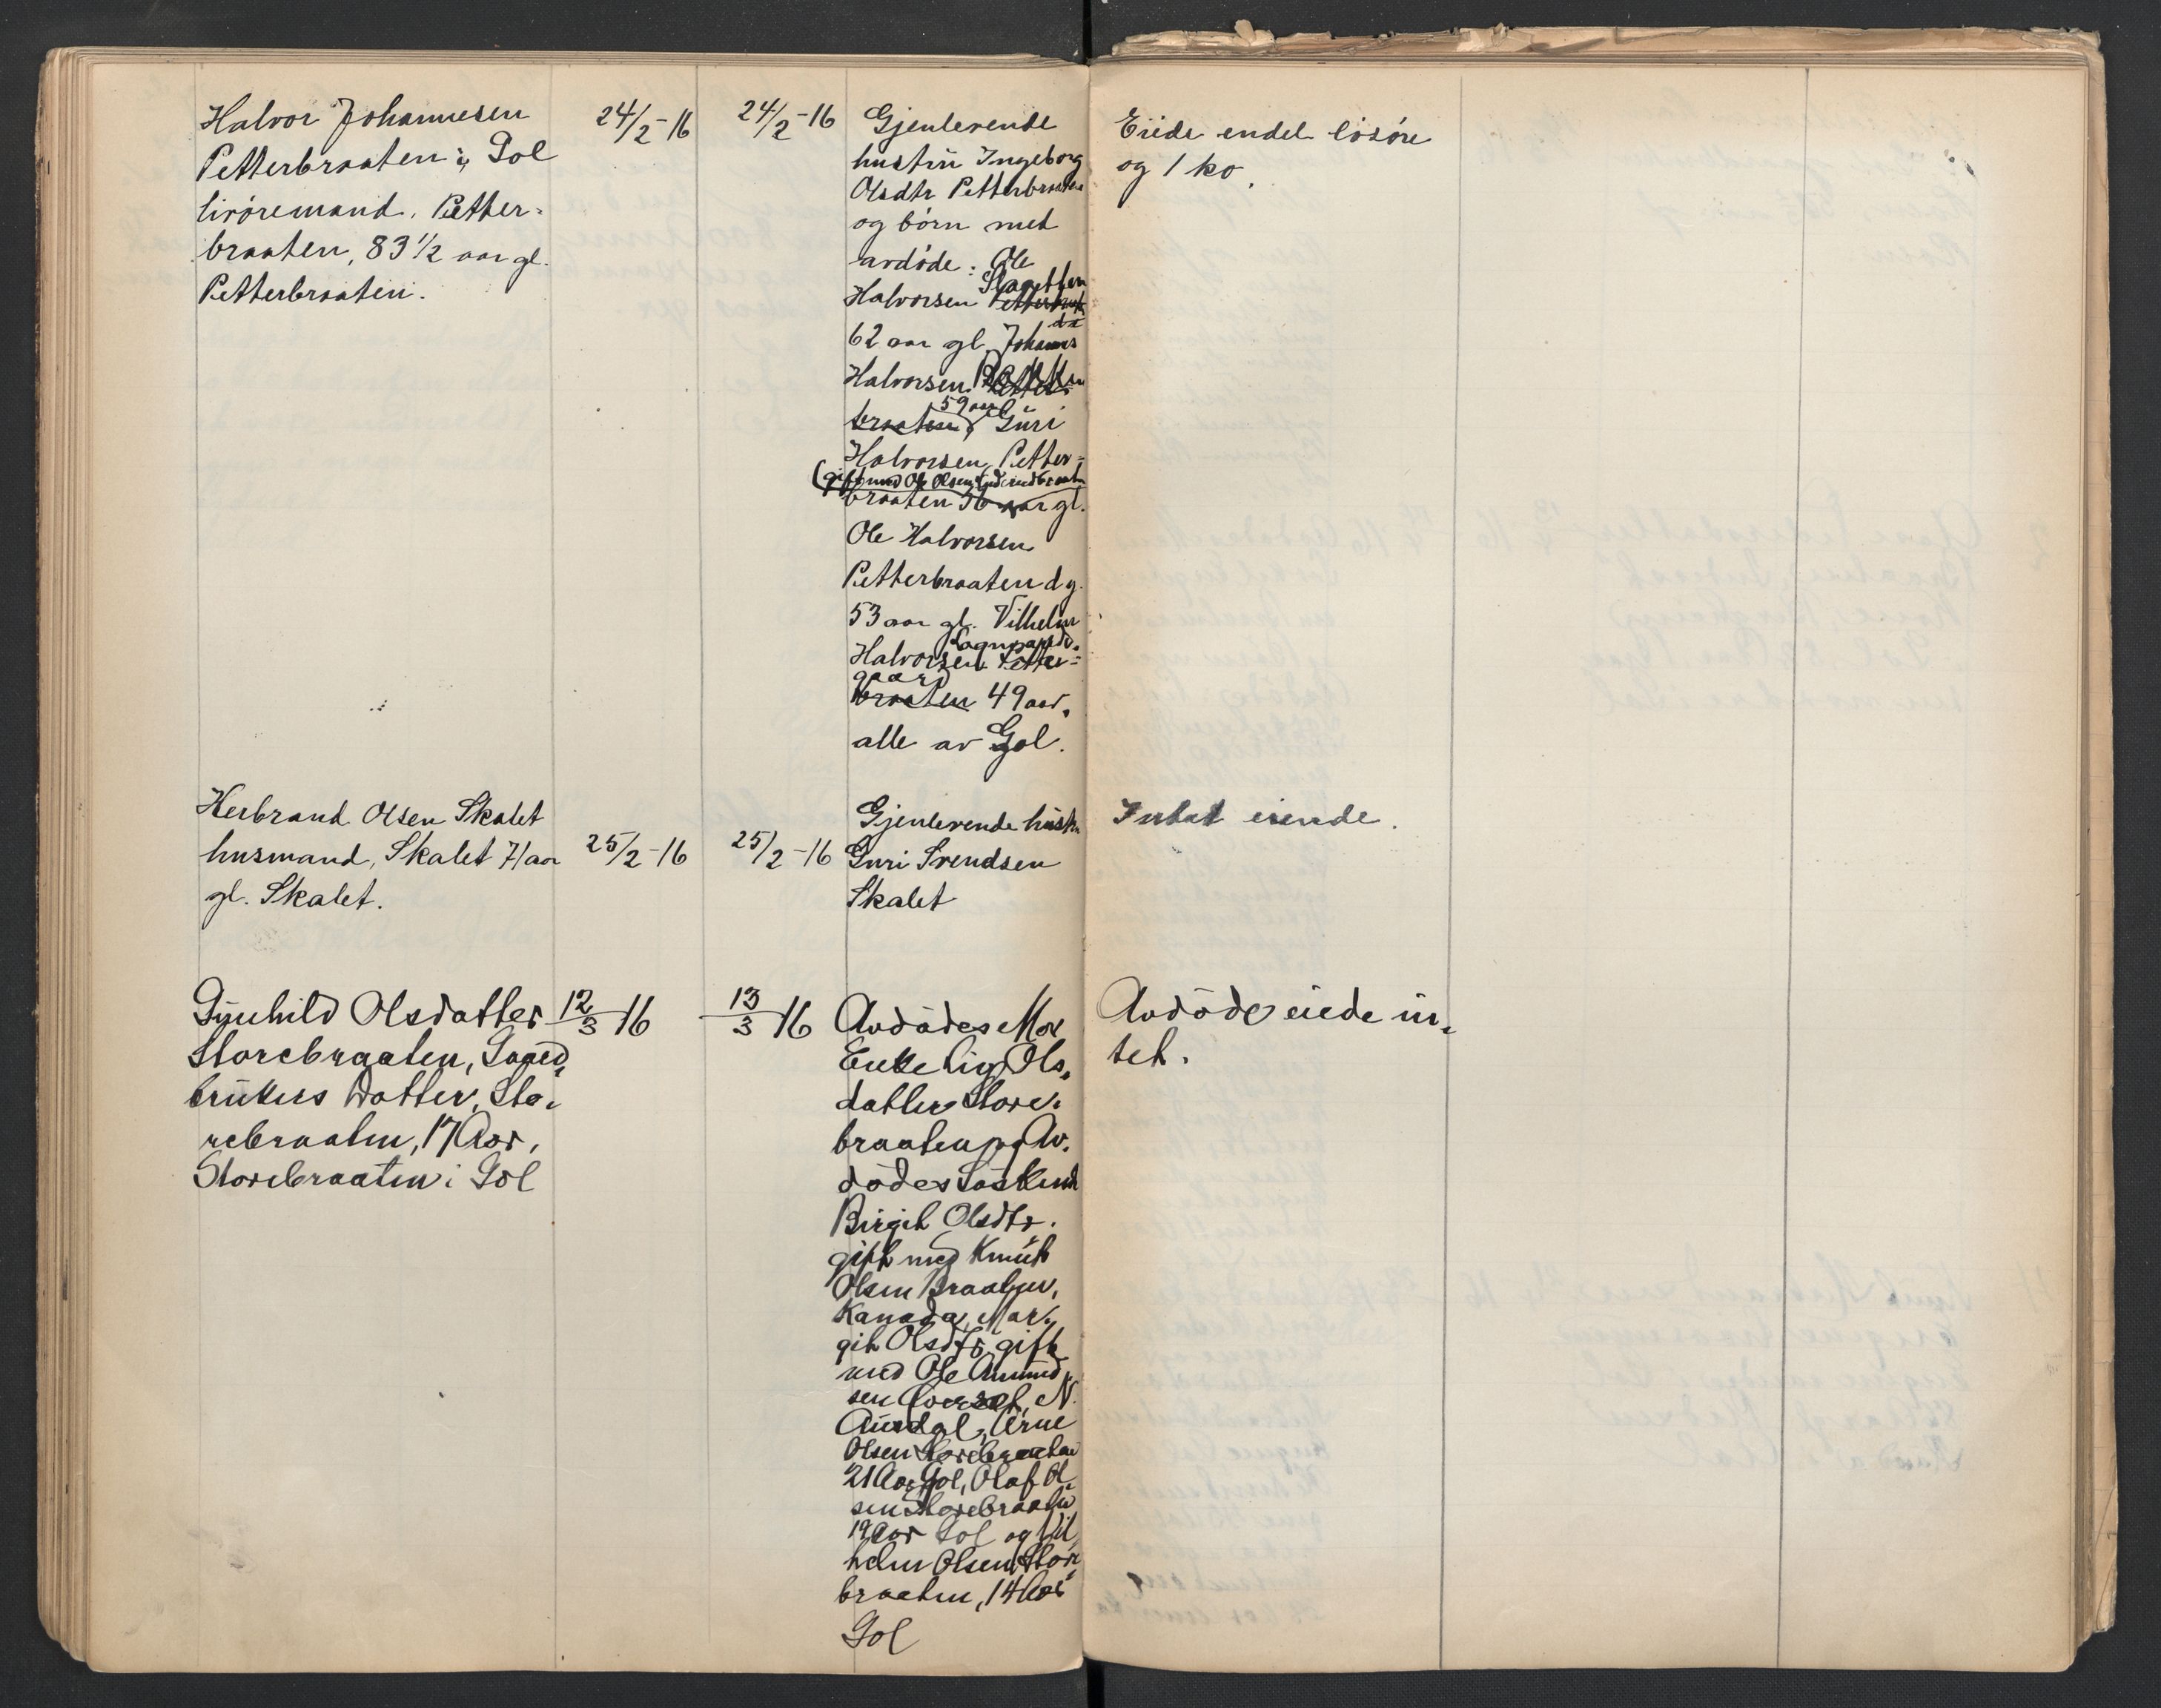 Halvor Johannesen
Petterbraaten i Gol
livøremand, Petter-
braaten, 83 1/2 aar gl.
Petterbraaten.
24/2-16
24/2-16
Gjenlevende
hustru Ingeborg
Olsdtr Petterbraaten
og børn med
avdøde: Ole
Halvorsen
62 aar gl. Johannes
Halvorsen
braaten, 59 aar Guri
Halvorsen Petter-
(gift med Ole Olsen
braaten 56 aar gl.
Ole Halvorsen
Petterbraaten d y.
53 aar gl. Vilhelm
Halvorsen Petter-
gaard
braaten 49 aar,
alle av Gol.
Eiede endel løsøre
og 1 ko.
Herbrand Olsen Skalet
husmand, Skalet 71 aar
gl. Skalet.
25/2-16
25/2-16
Gjenlevende hustru
Guri Svendsen
Skalet
Intet eiende.
Gunhild Olsdatter
Storebraaten, Gaard-
brukers Datter, Sto-
rebraaten, 17 Aar,
Storebraaten i Gol
12/3 16
13/3 16
Avdødes Mor
Enke Liv Ols-
datter Store-
braaten og Av-
dødes Søskend
Birgit Olsdtr.
gift med Knut
Olsen Braaljer,
Kanada, Mar-
git Olsdtr. gift
med Ole Amund-
sen N.
Aurdal, Arne
Olsen Storebraaten
21 Aar, Gol, Olaf Ol-
sen Storebraaten
19 Aar Gol og Vil-
helm Olsen Store-
braaten, 14 Aar
Gol
Avdøde eiede in-
tet.